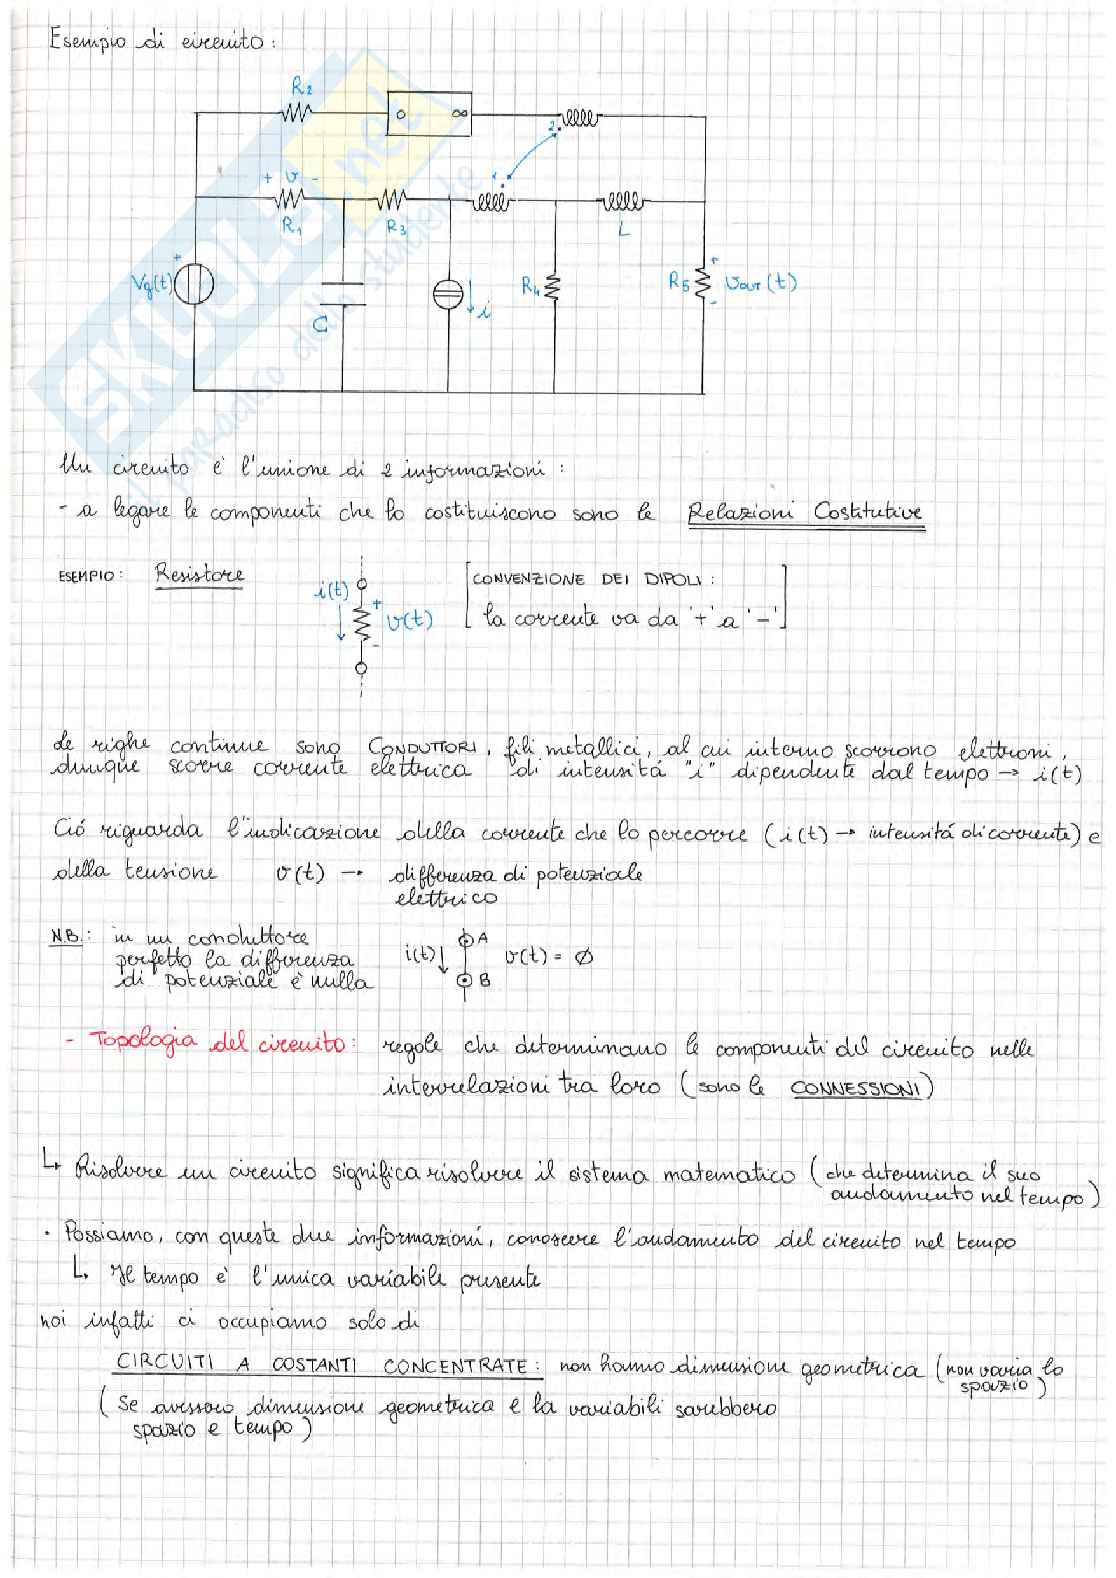 Esempio di circuito:
R2
o ∞
2
+ v -
R1
R3
L
+
Vg(t)
C
i
R4
R5
+
-
vOUT(t)
SKUOLA.net
il paradiso dello studente
Un circuito è l'unione di 2 informazioni:
- a legare le componenti che lo costituiscono sono le Relazioni Costitutive
ESEMPIO: Resistore
i(t)
+
v(t)
-
[CONVENZIONE DEI DIPOLI:
la corrente va da '+' a '-']
Le righe continue sono CONDUTTORI, fili metallici, al cui interno scorrono elettroni,
dunque scorre corrente elettrica di intensitá "i" dipendente dal tempo → i(t)
Ció riguarda l'indicazione della corrente che lo percorre (i(t) → intensitá di corrente) e
della tensione v(t) → differenza di potenziale
elettrico
N.B.: in un conduttore
perfetto la differenza
di potenziale è nulla
i(t)
A
B
v(t) = ∅
- Topologia del circuito: regole che determinano le componenti del circuito nelle
interrelazioni tra loro (sono le CONNESSIONI)
↳ Risolvere un circuito significa risolvere il sistema matematico (che determina il suo
andamento nel tempo)
· Possiamo, con queste due informazioni, conoscere l'andamento del circuito nel tempo
↳ Il tempo è l'unica variabile presente
noi infatti ci occupiamo solo di
CIRCUITI A COSTANTI CONCENTRATE: non hanno dimensione geometrica (non varia lo
spazio)
(Se avessero dimensione geometrica e la variabili sarebbero
spazio e tempo)